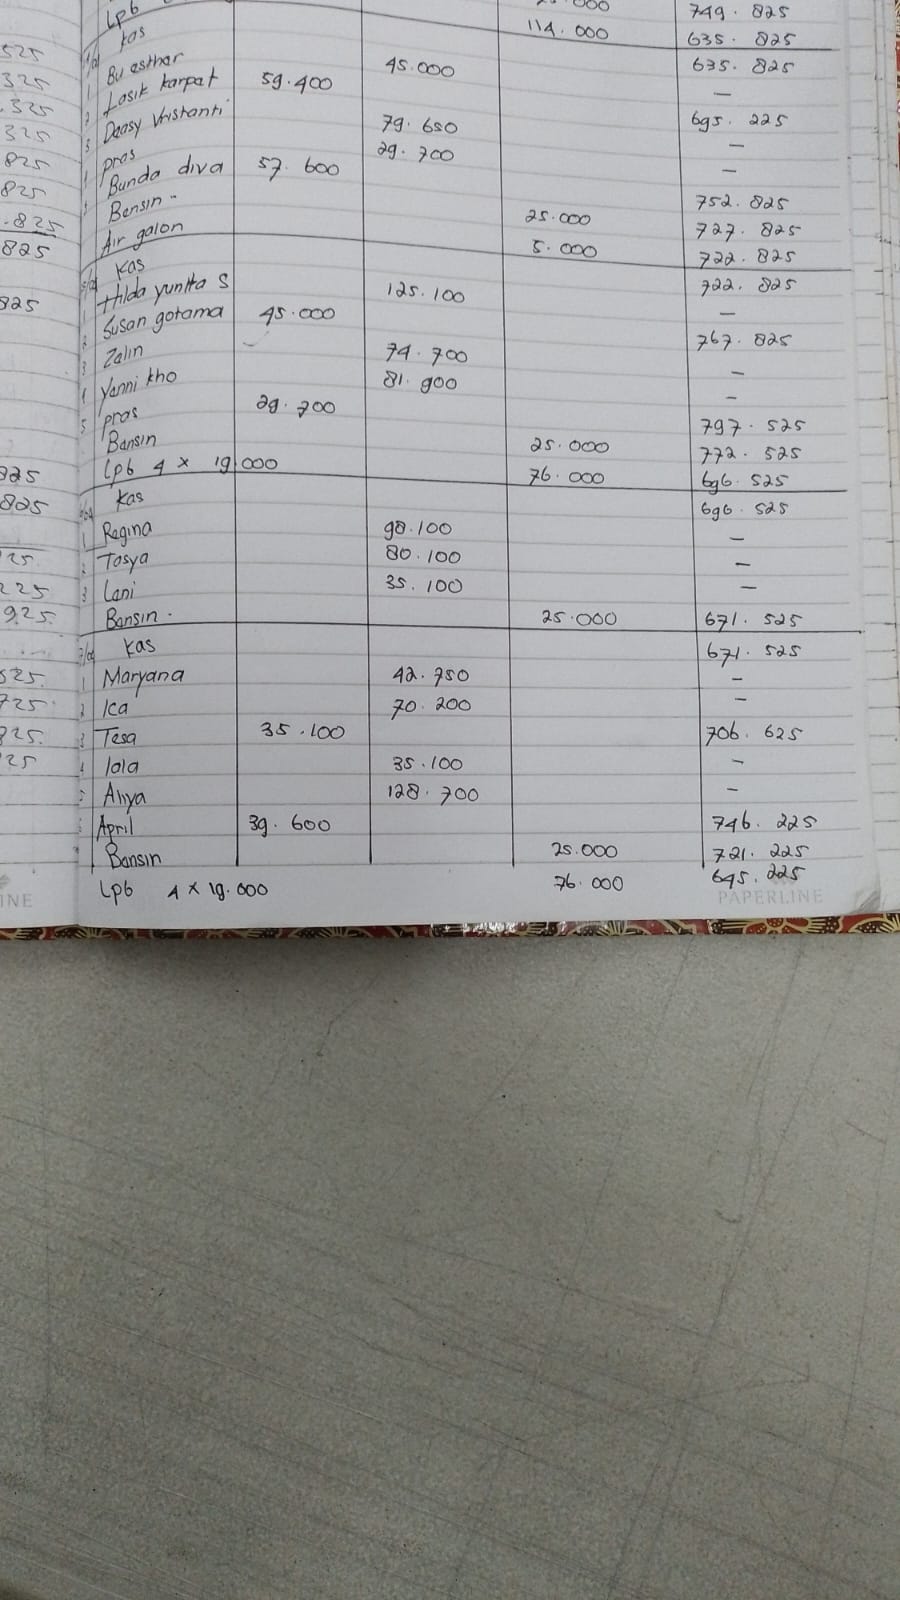 525
325
.325
325
825
825
.825
825
825
825
825
25.
225
925.
525.
725.
825.
25
INE
Lpb 25.000 749.825
114.000 635.825
Kas 635.825
1 Bu esthar 45.000 —
2 Lasik karpat 59.400 695.225
3 Deasy Vristanti 79.650 —
pras 29.700 —
Bunda diva 57.600 752.825
Bensin - 25.000 727.825
Air galon 5.000 722.825
Kas 722.825
1 Hilda yunita S 125.100 —
2 Susan gotama 45.000 767.825
3 Zalin 74.700 —
4 Yenni kho 81.900 —
5 pras 29.700 797.525
Bensin 25.000 772.525
Lpb 4 x 19.000 76.000 696.525
Kas 696.525
1 Regina 98.100 —
2 Tasya 80.100 —
3 Leni 35.100 —
Bensin - 25.000 671.525
Kas 671.525
1 Maryana 42.750 —
2 Ica 70.200 —
3 Tesa 35.100 706.625
4 lola 35.100 —
5 Aliya 128.700 —
April 39.600 746.225
Bensin 25.000 721.225
Lpb 4 x 19.000 76.000 645.225
PAPERLINE